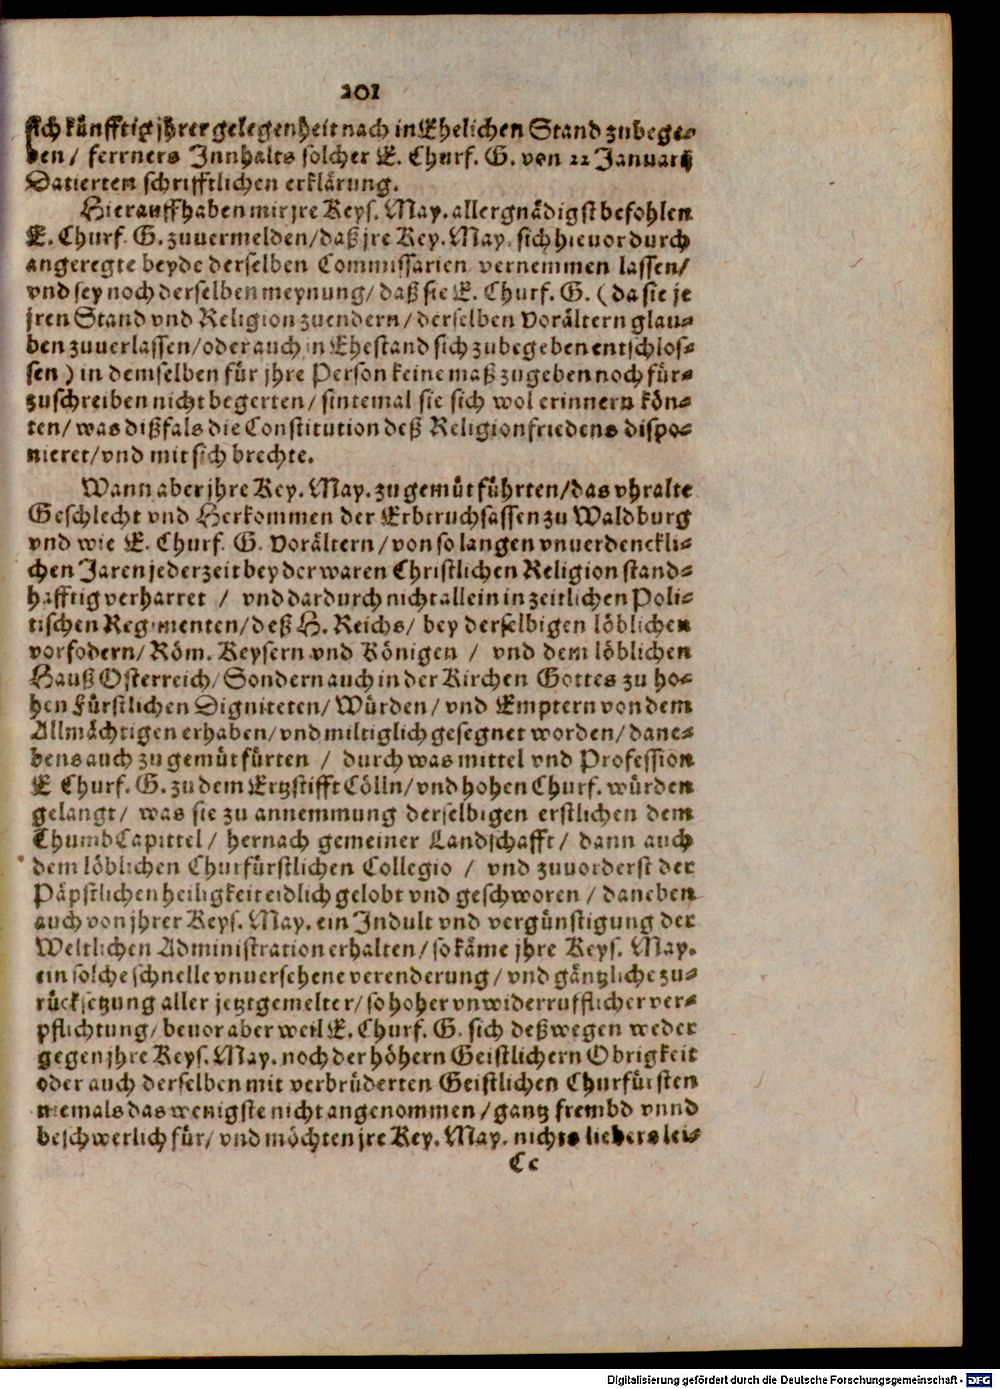 201
sich künfftig jhrer gelegenheit nach in Ehelichen Stand zubege-
ben / ferrners Innhalts solcher E. Churf. G. von 22 Januarij
Datierten schrifftlichen erklärung.
Hierauff haben mir jre Keys. May. allergnädigst befohlen
E. Churf. G. zuuermelden/ daß jre Key. May. sich hieuor durch
angeregte beyde derselben Commissarien vernemmen lassen/
vnd sey noch derselben meynung/ daß sie E. Churf. G. (da sie je
jren Stand vnd Religion zuendern/ derselben Vorältern glau-
ben zuuerlassen/ oder auch in Ehestand sich zubegeben entschlos-
sen) in demselben für jhre Person keine maß zugeben noch für-
zuschreiben nicht begerten/ sintemal sie sich wol erinnern kön-
ten/ was dißfals die Constitution deß Religionfriedens dispo-
nieret/ vnd mit sich brechte.
Wann aber jhre Key. May. zu gemüt führten/ das vhralte
Geschlecht vnd Herkommen der Erbtruchsassen zu Waldburg
vnd wie E. Churf. G. Vorältern/ von so langen vnuerdenckli-
chen Jaren jederzeit bey der waren Christlichen Religion stand-
hafftig verharret / vnd dardurch nicht allein in zeitlichen Poli-
tischen Regimenten/ deß H. Reichs/ bey derselbigen löblichen
vorfodern/ Röm. Keysern vnd Königen / vnd dem löblichen
Hauß Osterreich/ Sondern auch in der Kirchen Gottes zu ho-
hen Fürstlichen Digniteten/ Würden/ vnd Emptern von dem
Allmächtigen erhaben/ vnd miltiglich gesegnet worden/ dane-
bens auch zu gemüt fürten / durch was mittel vnd Profession
E Churf. G. zu dem Ertzstifft Cölln/ vnd hohen Churf. würden
gelangt/ was sie zu annemmung derselbigen erstlichen dem
ThumbCapittel / hernach gemeiner Landschafft/ dann auch
dem löblichen Churfürstlichen Collegio / vnd zuuorderst der
Päpstlichen heiligkeit eidlich gelobt vnd geschworen / daneben
auch von jhrer Keys. May. ein Indult vnd vergünstigung der
Weltlichen Administration erhalten/ so käme jhre Keys. May.
ein solche schnelle vnuersehene verenderung/ vnd gäntzliche zu-
rücksetzung aller jetztgemelter/ so hoher vnwiderrufflicher ver-
pflichtung/ beuor aber weil E. Churf. G. sich deßwegen weder
gegen jhre Keys. May. noch der höhern Geistlichern Obrigkeit
oder auch derselben mit verbrüderten Geistlichen Churfürsten
niemals das wenigste nicht angenommen/ gantz frembd vnnd
beschwerlich für/ vnd möchten jre Key. May. nichts liebers lei-
Cc
Digitalisierung gefördert durch die Deutsche Forschungsgemeinschaft - DFG